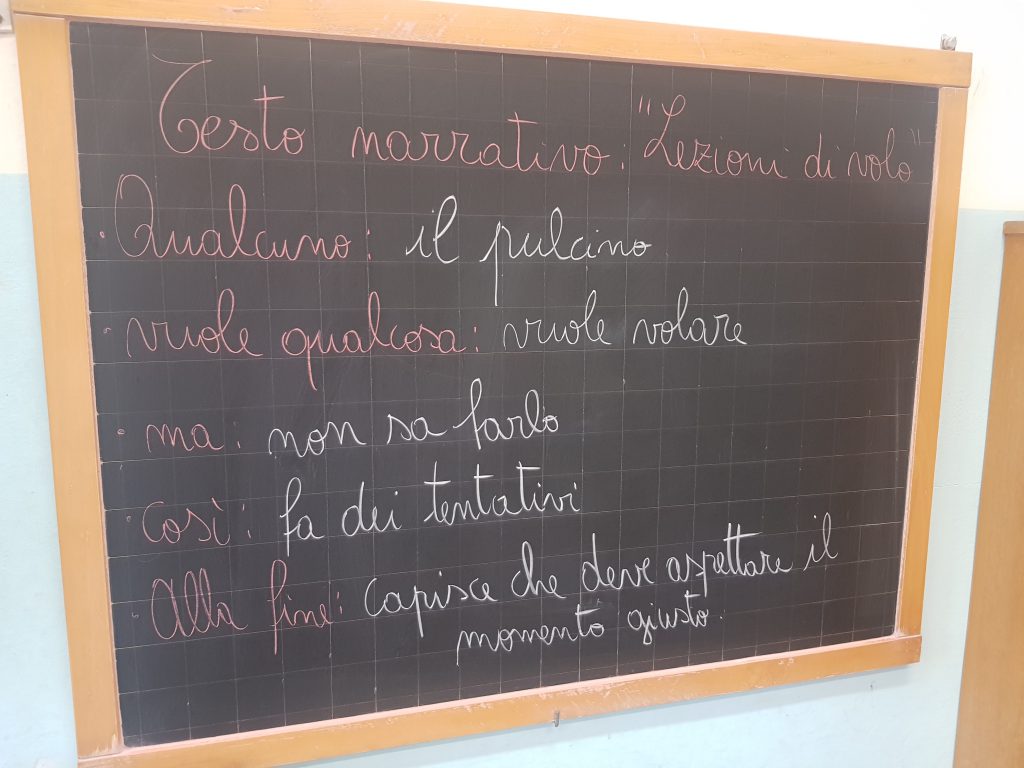 Testo narrativo: "Lezioni di volo"
• Qualcuno: il pulcino
• vuole qualcosa: vuole volare
• ma: non sa farlo
• così: fa dei tentativi
• Alla fine: capisce che deve aspettare il
momento giusto.